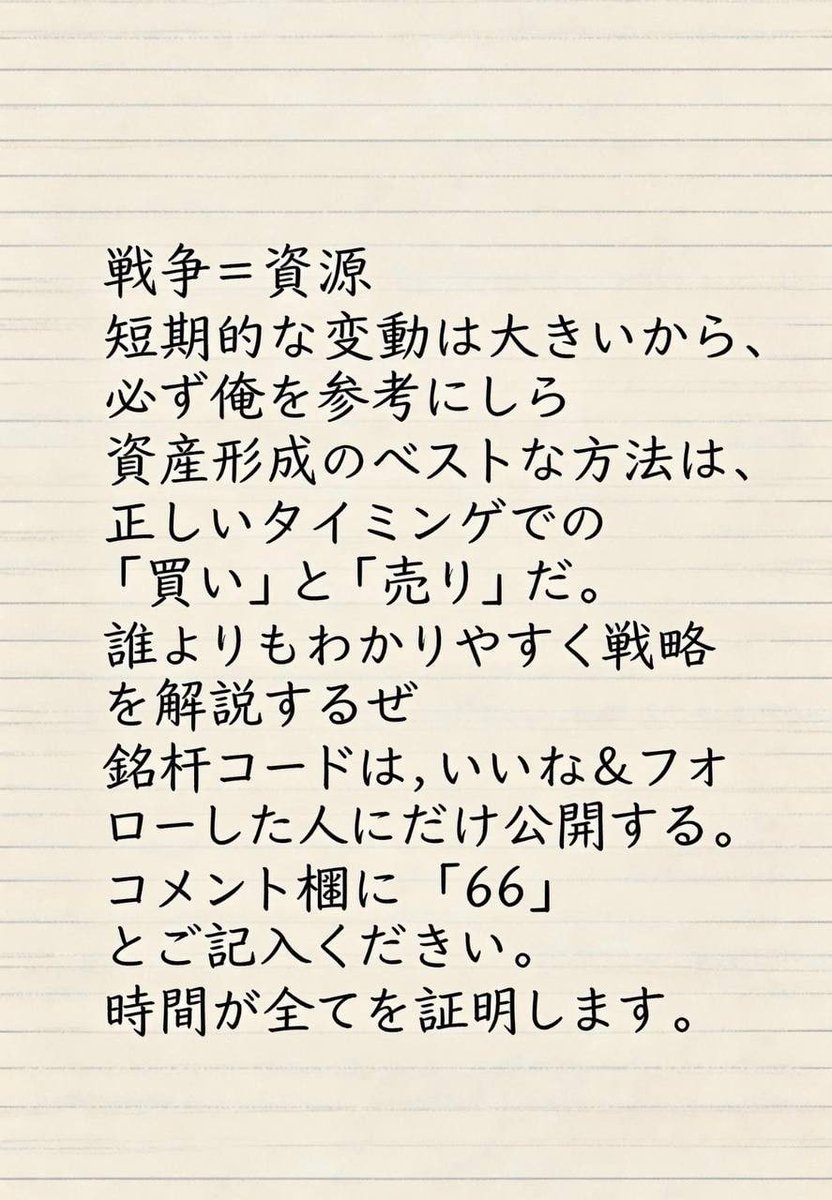 戦争＝資源
短期的な変動は大きいから、
必ず俺を参考にしら
資産形成のベストな方法は、
正しいタイミンゲでの
「買い」と「売り」だ。
誰よりもわかりやすく戦略
を解説するぜ
銘杆コードは,いいね&フォ
ローした人にだけ公開する。
コメント欄に「66」
とご記入くだきい。
時間が全てを証明します。